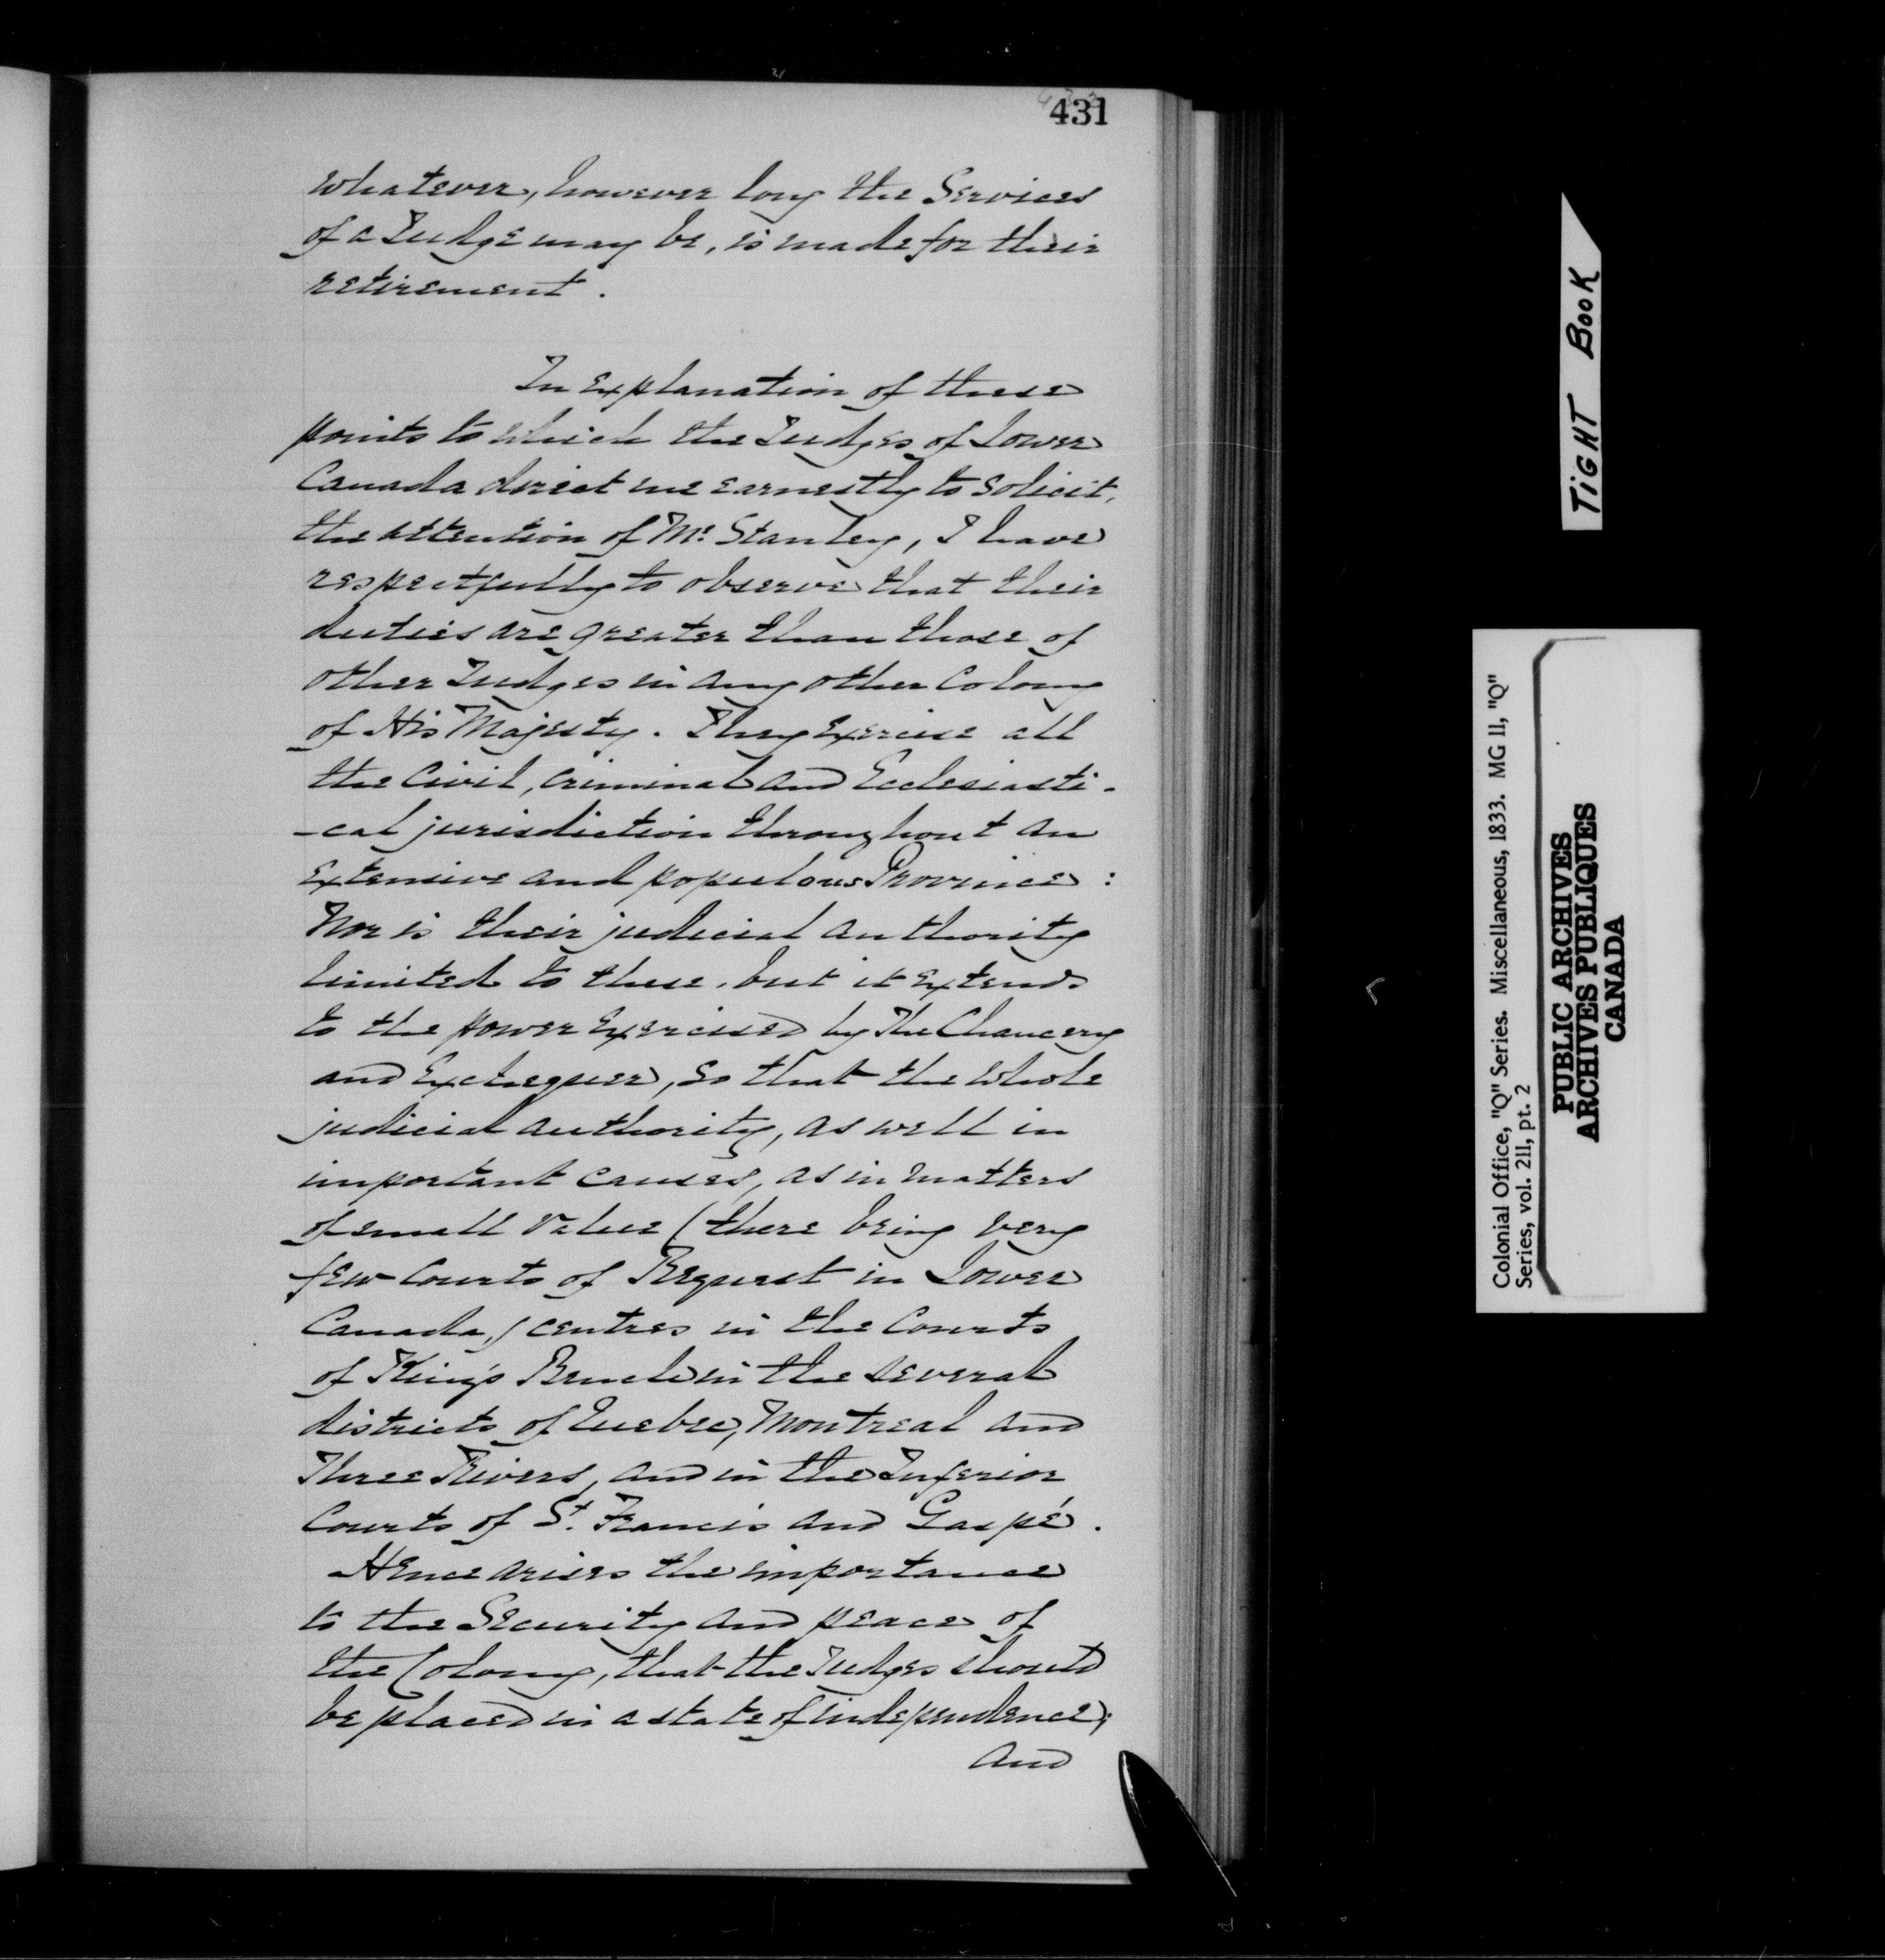 431
whatever, however long the Services
of a Judge may be, is made for their
retirement.
In explanation of these
points to which the Judges of Lower
Canada direct me earnestly to solicit,
the attention of Mr. Stanley, I have
respectfully to observe that their
duties are greater than those of
other Judges in any other Colony
of His Majesty. They exercise all
the Civil, Criminal and Ecclesiasti-
-cal jurisdiction throughout an
extensive and populous Province:
Nor is their judicial authority
limited to these, but it extends
to the power exercised by The Chancery
and Exchequer, so that the whole
judicial authority, as well in
important causes, as in matters
of small value (there being very
few Courts of Request in Lower
Canada,) centres in the Courts
of King's Bench in the several
districts of Quebec, Montreal and
Three Rivers, and in the Inferior
Courts of St. Francis and Gaspé.
Hence arises the importance
to the Security and peace of
the Colony, that the Judges should
be placed in a state of independence;
and
TIGHT BOOK
Colonial Office, "Q" Series. Miscellaneous, 1833. MG 11, "Q"
Series, vol. 211, pt. 2
PUBLIC ARCHIVES
ARCHIVES PUBLIQUES
CANADA